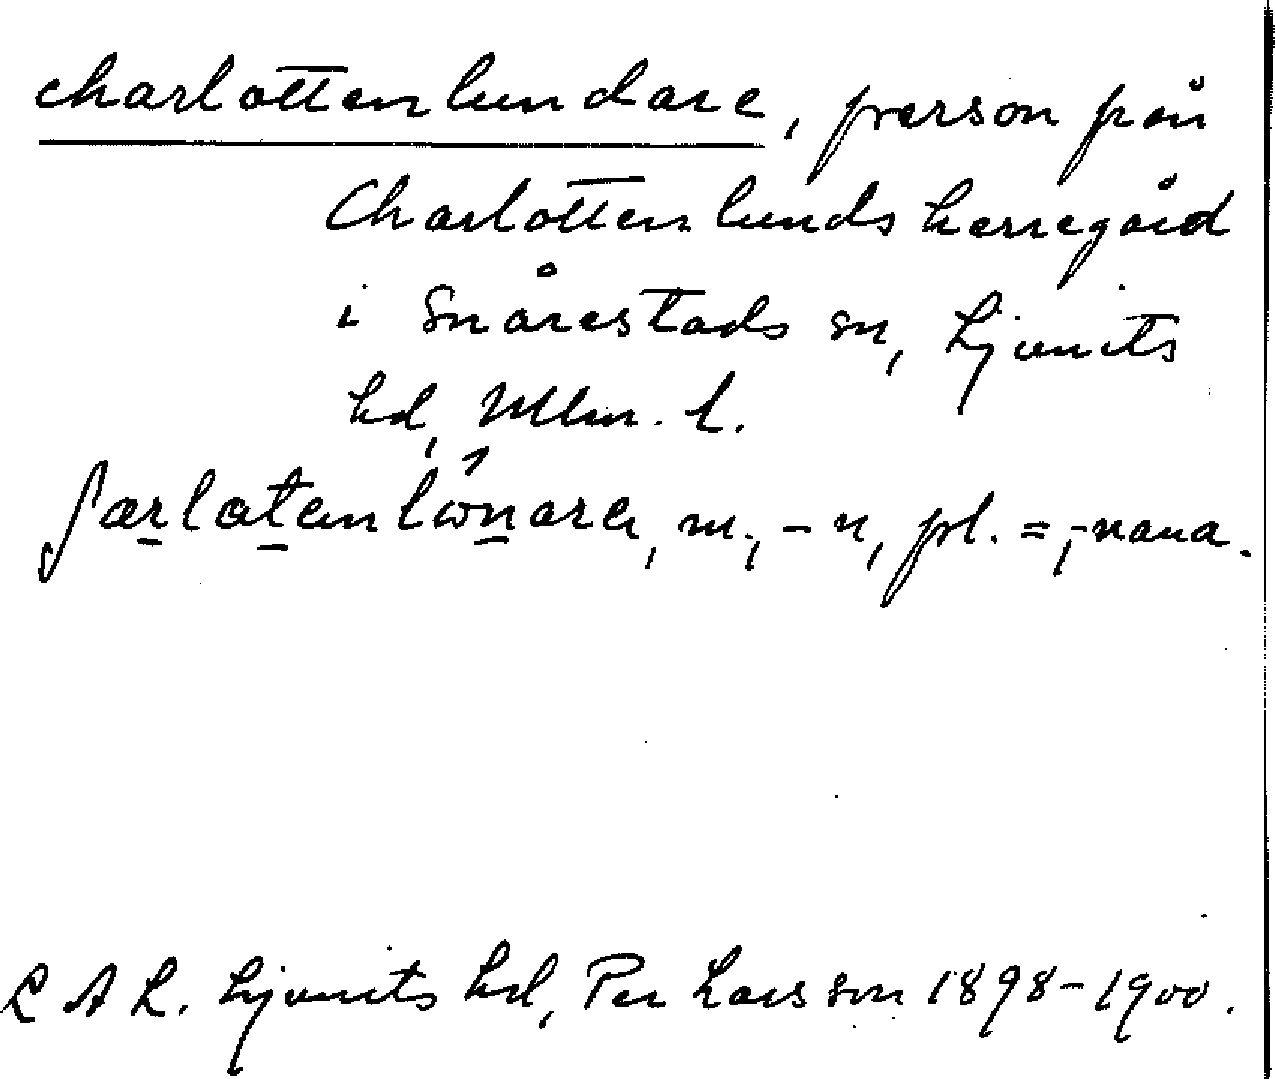 charlottenlundare, person från
Charlottenlunds herregård
i Snårestads sn, Ljunits
hd, Mlm. l.
ʃarlatenlönare, m., -n, pl. =, -nana.
L A L. Ljunits hd, Per Larsson 1898-1900.